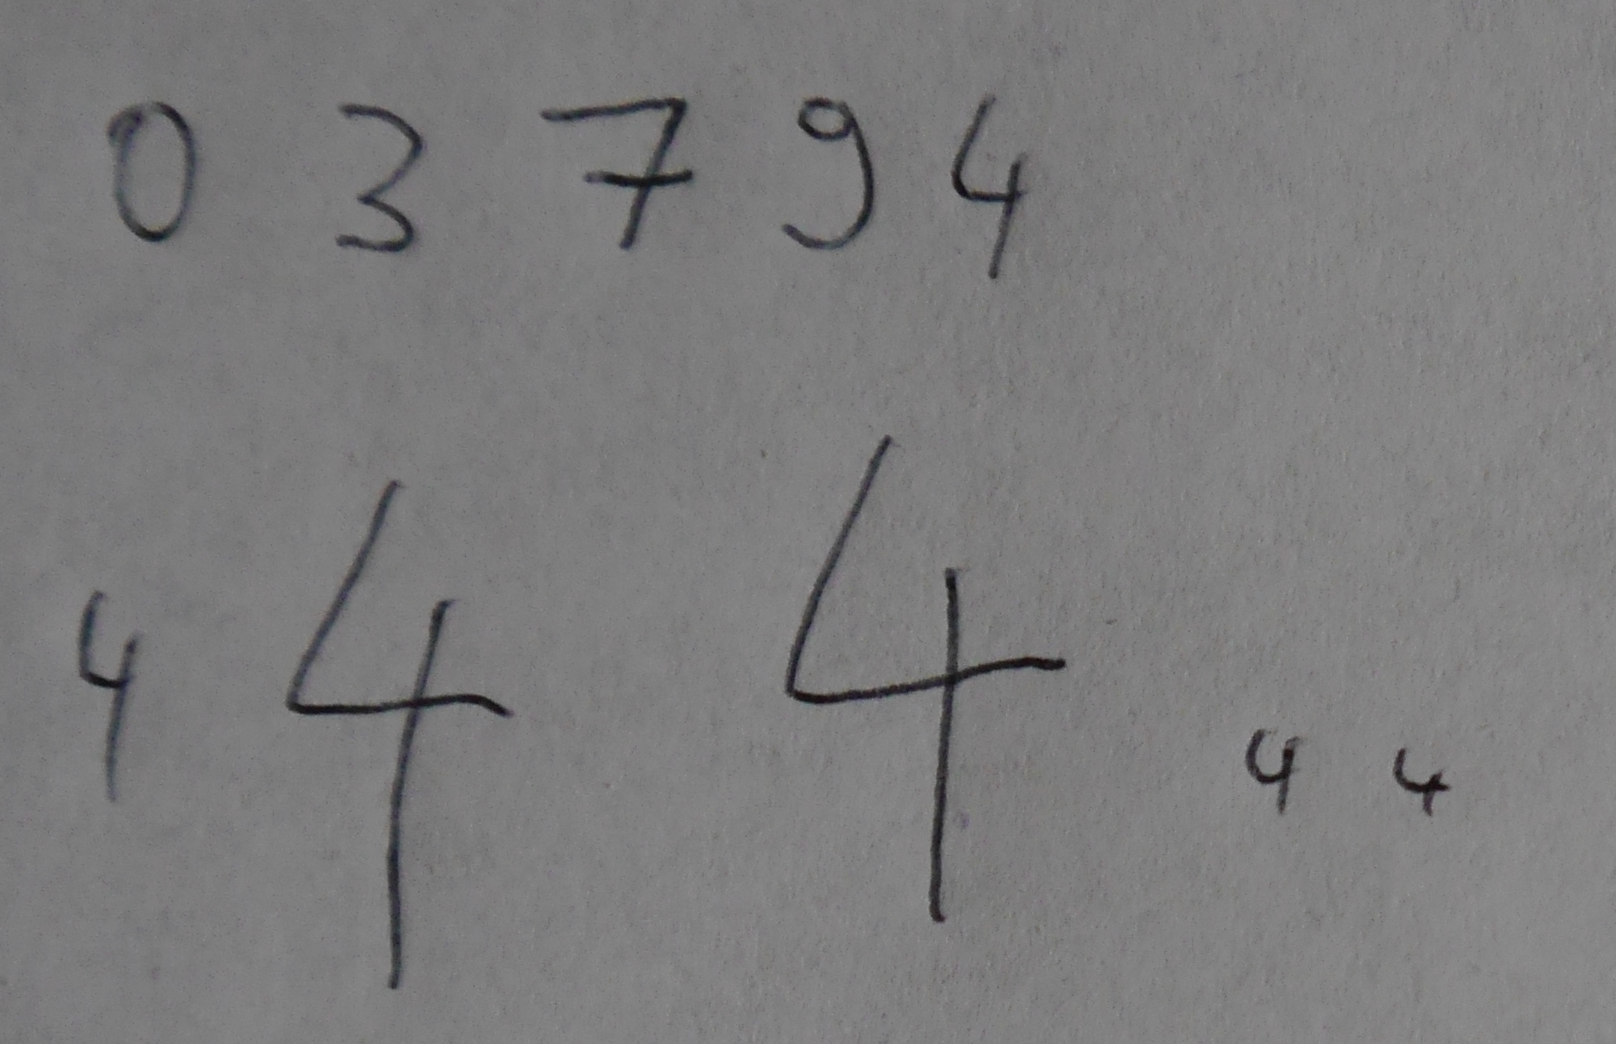 0 3 7 9 4
4 4 4 4 4